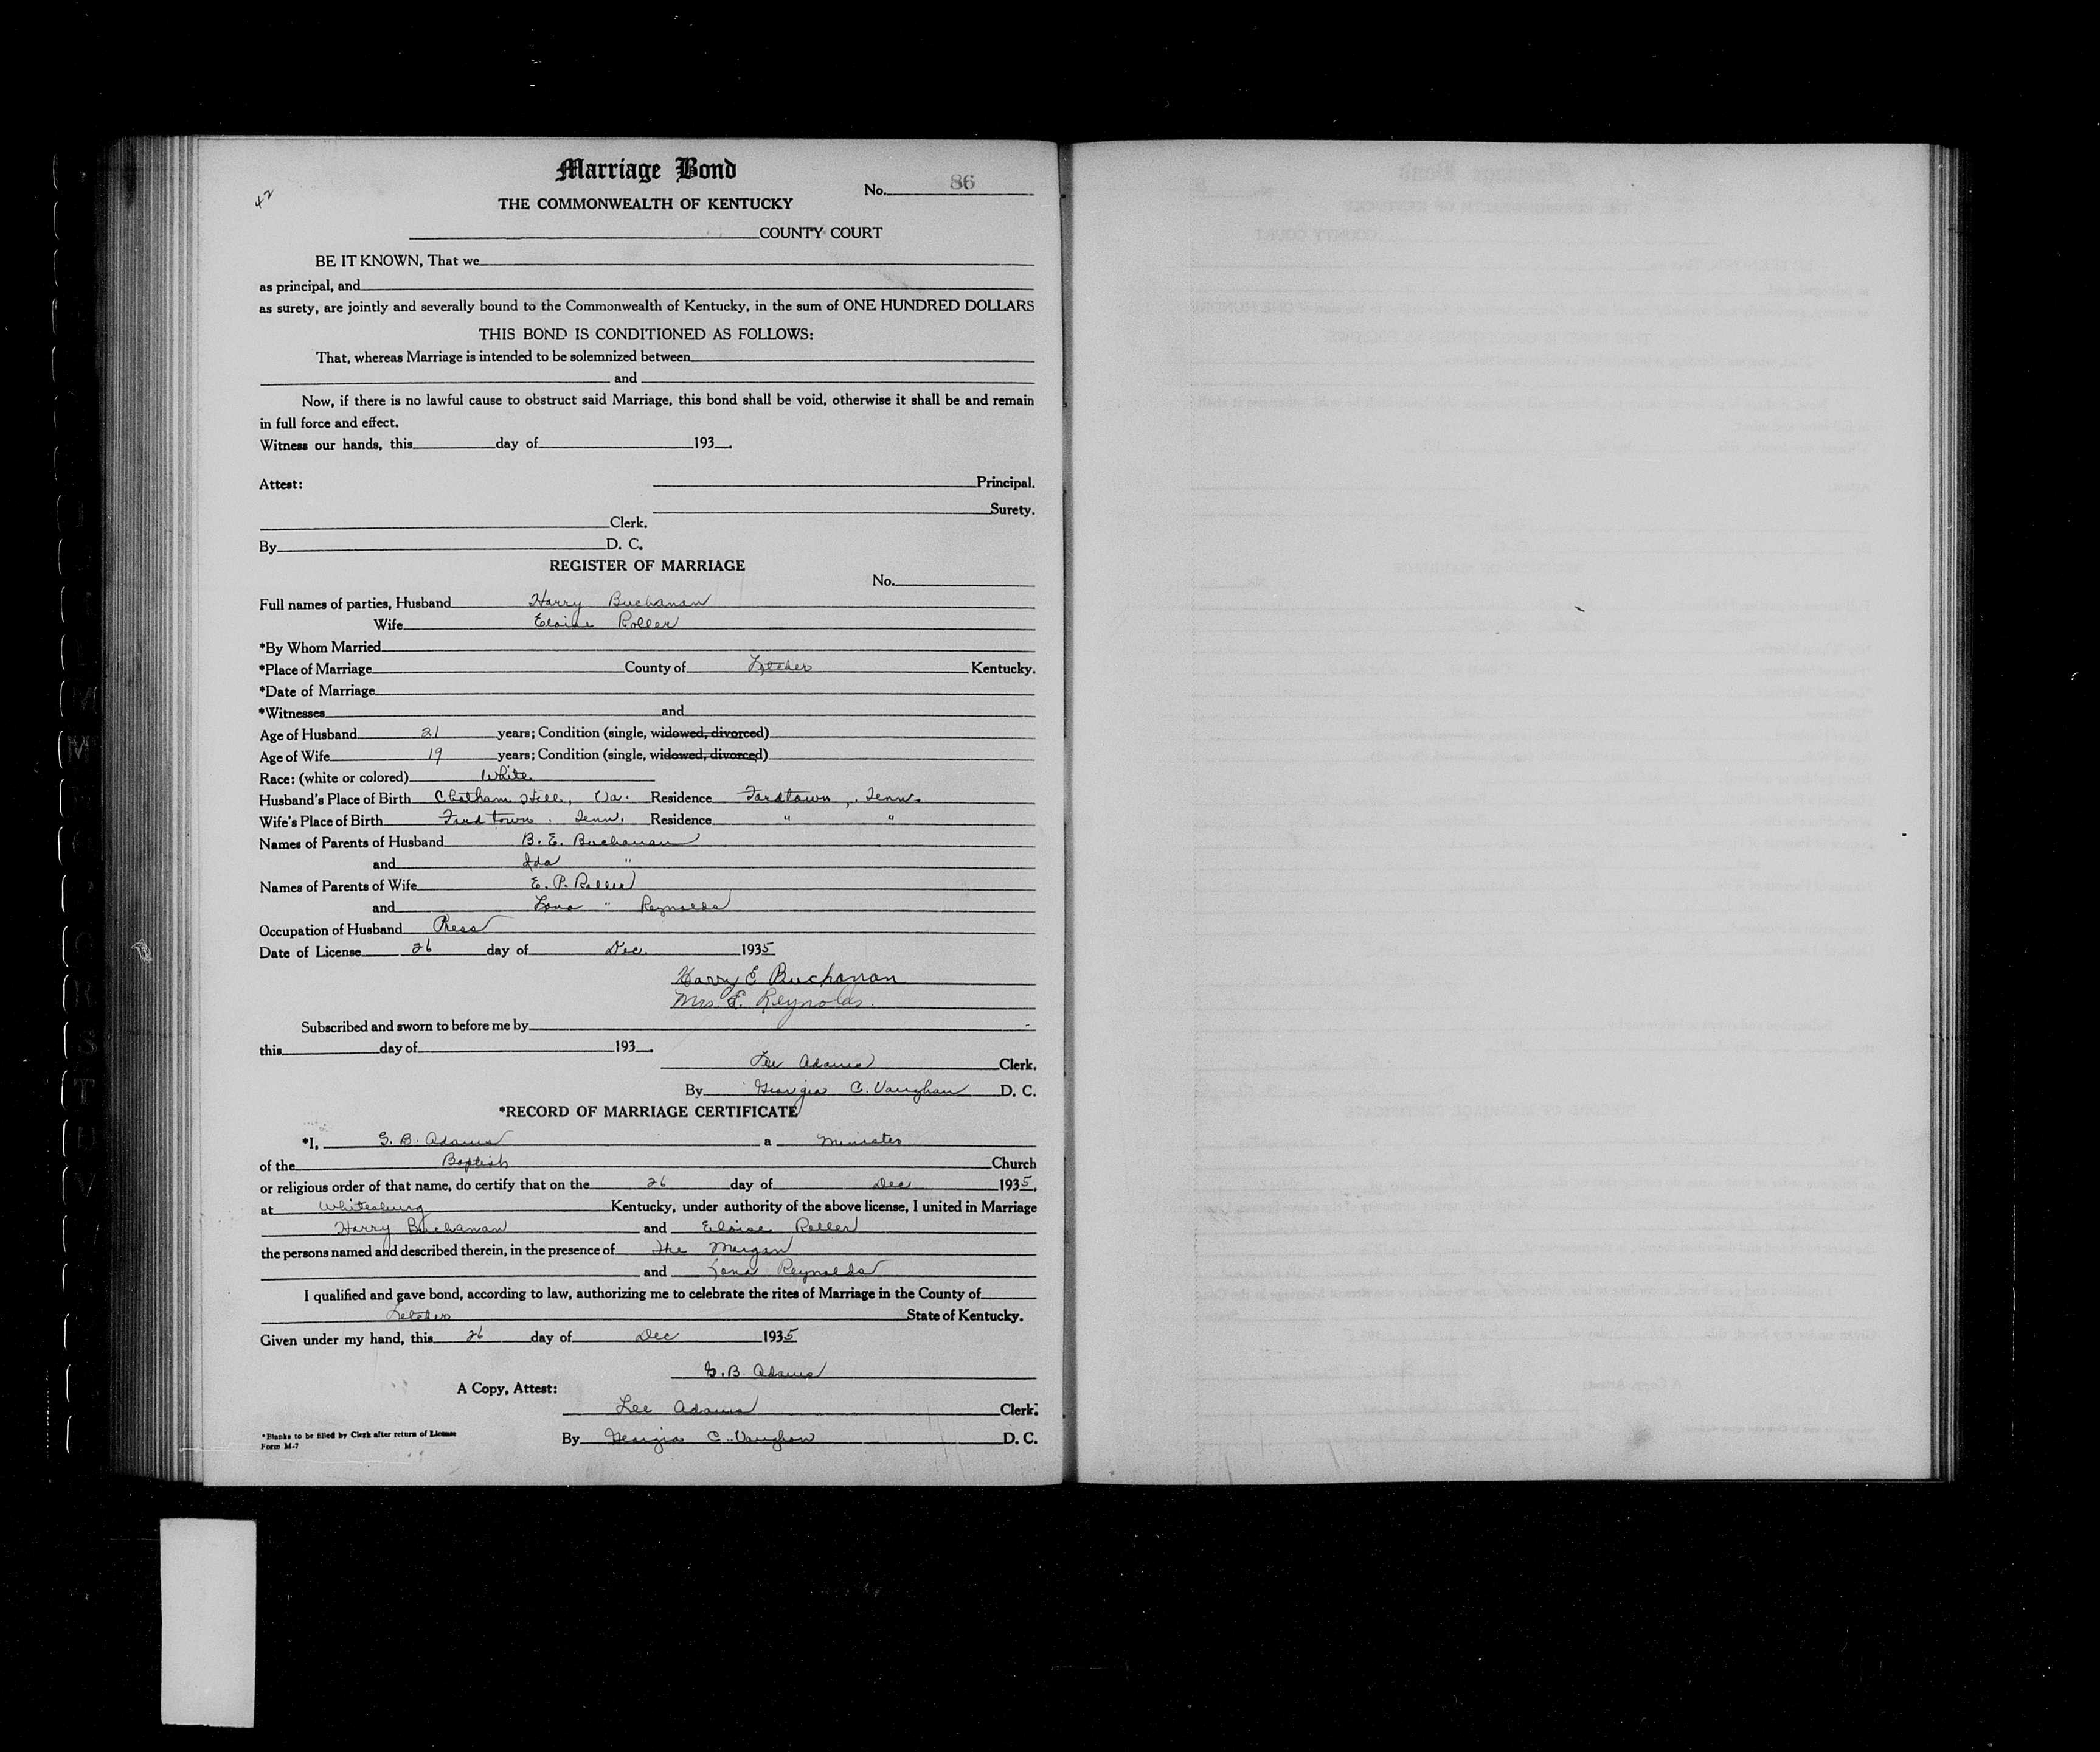 Marriage Bond
42
No. 86
THE COMMONWEALTH OF KENTUCKY
COUNTY COURT
BE IT KNOWN, That we
as principal, and
as surety, are jointly and severally bound to the Commonwealth of Kentucky, in the sum of ONE HUNDRED DOLLARS
THIS BOND IS CONDITIONED AS FOLLOWS:
That, whereas Marriage is intended to be solemnized between
and
Now, if there is no lawful cause to obstruct said Marriage, this bond shall be void, otherwise it shall be and remain
in full force and effect.
Witness our hands, this day of 193 .
Attest: Principal.
Surety.
Clerk.
By D. C.
REGISTER OF MARRIAGE
No.
Full names of parties, Husband Harry Buchanan
Wife Eloise Roller
*By Whom Married
*Place of Marriage County of Letcher Kentucky.
*Date of Marriage
*Witnesses and
Age of Husband 21 years; Condition (single, widowed, divorced)
Age of Wife 19 years; Condition (single, widowed, divorced)
Race: (white or colored) White
Husband's Place of Birth Chatham Hill, Va. Residence Fordtown, Tenn.
Wife's Place of Birth Fordtown, Tenn. Residence " "
Names of Parents of Husband B. E. Buchanan
and Ida "
Names of Parents of Wife E. P. Roller
and Lona " Reynolds
Occupation of Husband Press
Date of License 26 day of Dec. 1935
Harry E Buchanan
Mrs. E. Reynolds.
Subscribed and sworn to before me by
this day of 193 .
Lee Adams Clerk.
By Georgia C. Vaughan D. C.
*RECORD OF MARRIAGE CERTIFICATE
*I, G. B. Adams a Minister
of the Baptist Church
or religious order of that name, do certify that on the 26 day of Dec 1935,
at Whitesburg Kentucky, under authority of the above license, I united in Marriage
Harry Buchanan and Eloise Roller
the persons named and described therein, in the presence of Morgan
and Lona Reynolds
I qualified and gave bond, according to law, authorizing me to celebrate the rites of Marriage in the County of
Letcher State of Kentucky.
Given under my hand, this 26 day of Dec 1935
G. B. Adams
A Copy, Attest:
Lee Adams Clerk.
*Blanks to be filled by Clerk after return of License
Form M-7
By Georgia C. Vaughan D. C.